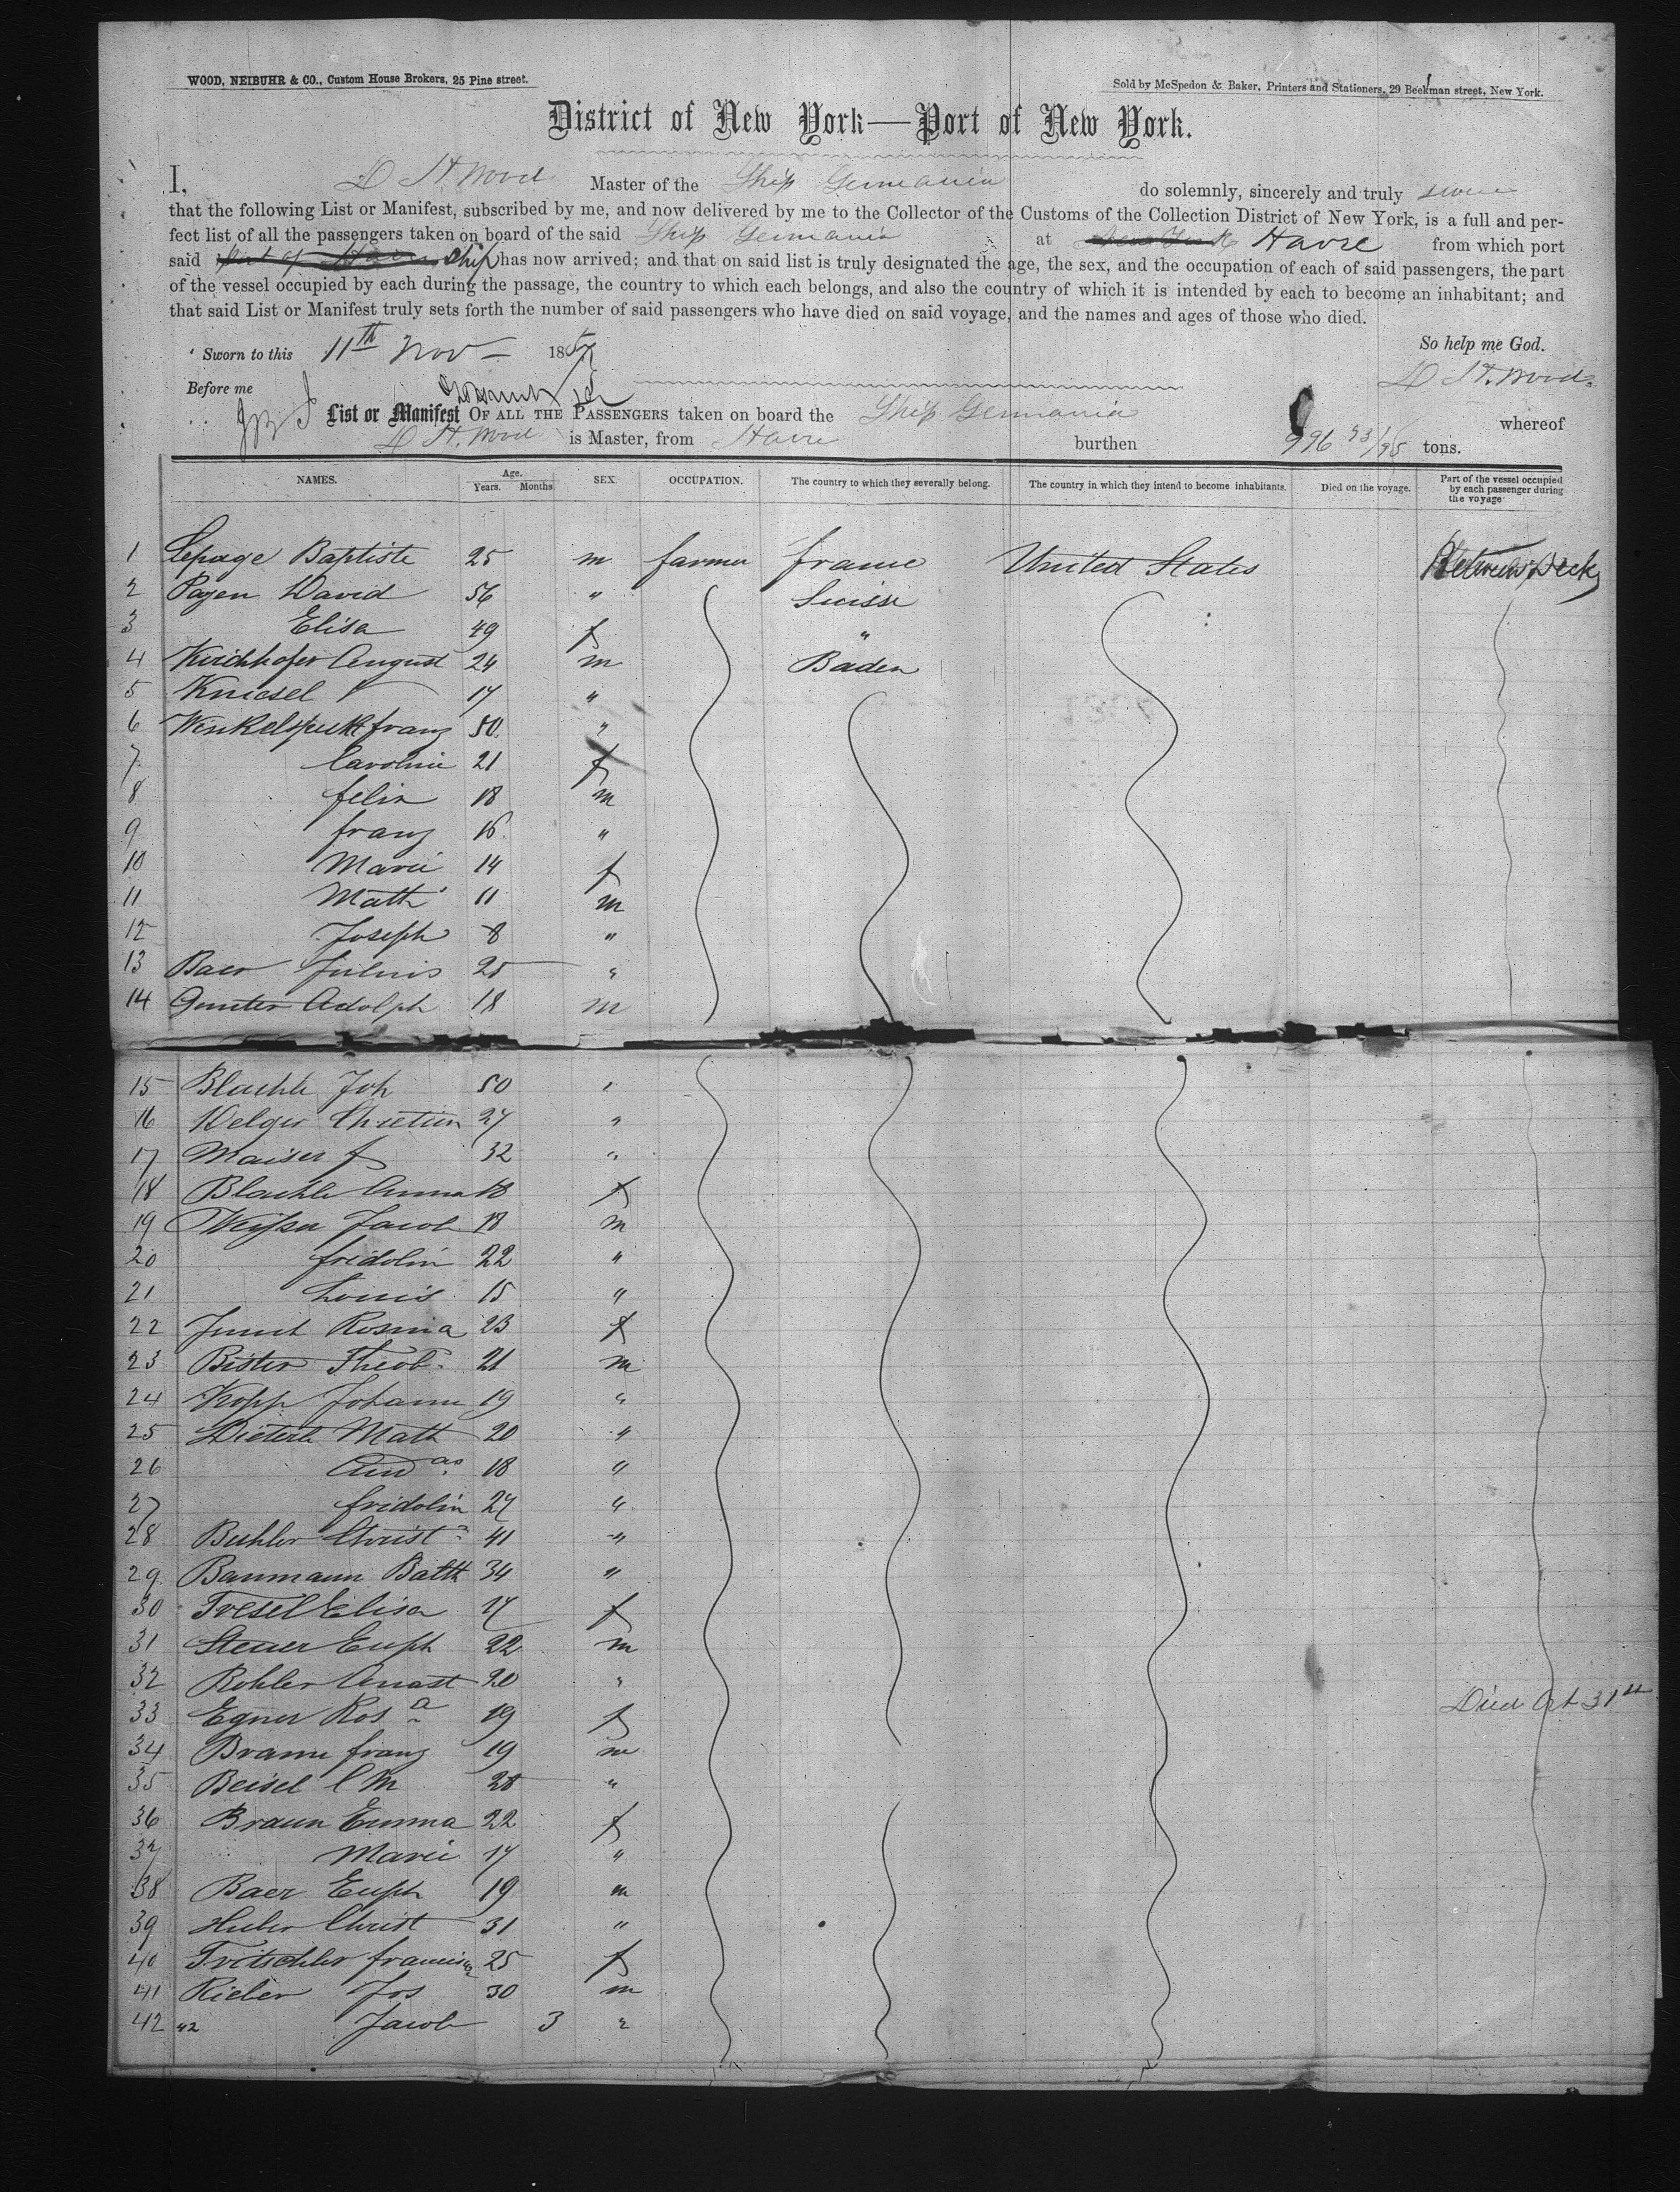 WOOD, NEIBUHR & CO., Custom House Brokers, 25 Pine street.
Sold by McSpedon & Baker, Printers and Stationers, 29 Beekman street, New York.
District of New York—Port of New York.
I, D H. Wood Master of the Ship Germania do solemnly, sincerely and truly swear
that the following List or Manifest, subscribed by me, and now delivered by me to the Collector of the Customs of the Collection District of New York, is a full and per-
fect list of all the passengers taken on board of the said Ship Germania at New York Havre from which port
said Port of Havre Ship has now arrived; and that on said list is truly designated the age, the sex, and the occupation of each of said passengers, the part
of the vessel occupied by each during the passage, the country to which each belongs, and also the country of which it is intended by each to become an inhabitant; and
that said List or Manifest truly sets forth the number of said passengers who have died on said voyage, and the names and ages of those who died.
Sworn to this 11th Nov 185 So help me God.
Before me D H. Wood
List or Manifest OF ALL THE PASSENGERS taken on board the Ship Germania whereof
D H. Wood is Master, from Havre burthen 996 93/95 tons.
NAMES. Age. Years. Months. SEX OCCUPATION. The country to which they severally belong. The country in which they intend to become inhabitants. Died on the voyage. Part of the vessel occupied by each passenger during the voyage
1 Lepage Baptiste 25 m farmer france United States Between Deck
2 Pagen David 56 " Suisse
3 Elisa 49 f "
4 Kirchhofer August 24 m Baden
5 Kniesel F 17 "
6 Winkelspecht franz 50 "
7 Caroline 21 f
8 felix 18 m
9 franz 16 "
10 Marie 14 f
11 Math 11 m
12 Joseph 8 "
13 Baer Julius 25 "
14 Gunter Adolph 18 m
15 Blachle Joh 50 "
16 Welger Chretien 27 "
17 Maiser f 32 "
18 Blachle Anna 18 f
19 Weysser Jacob 18 m
20 fridolin 22 "
21 Louis 15 "
22 Rosina 23 f
23 Bister Theob. 21 m
24 Kopp Johann 19 "
25 Dieterle Math 20 "
26 Andas 18 "
27 fridolin 27 "
28 Buhler Christn 41 "
29 Baumann Batth 34 "
30 Tresel Elisa 17 f
31 Steuer Euph 22 m
32 Kohler Anast 20 "
33 Egner Rosa 19 f Died Oct 31st
34 Braun franz 19 m
35 Beisel C M 28 "
36 Braun Emma 22 f
37 Marie 17 "
38 Baer Euph 19 m
39 Huber Christ 31 "
40 Tritschler 25 f
41 Rieber Jos 30 m
42 "42 Jacob 3 "